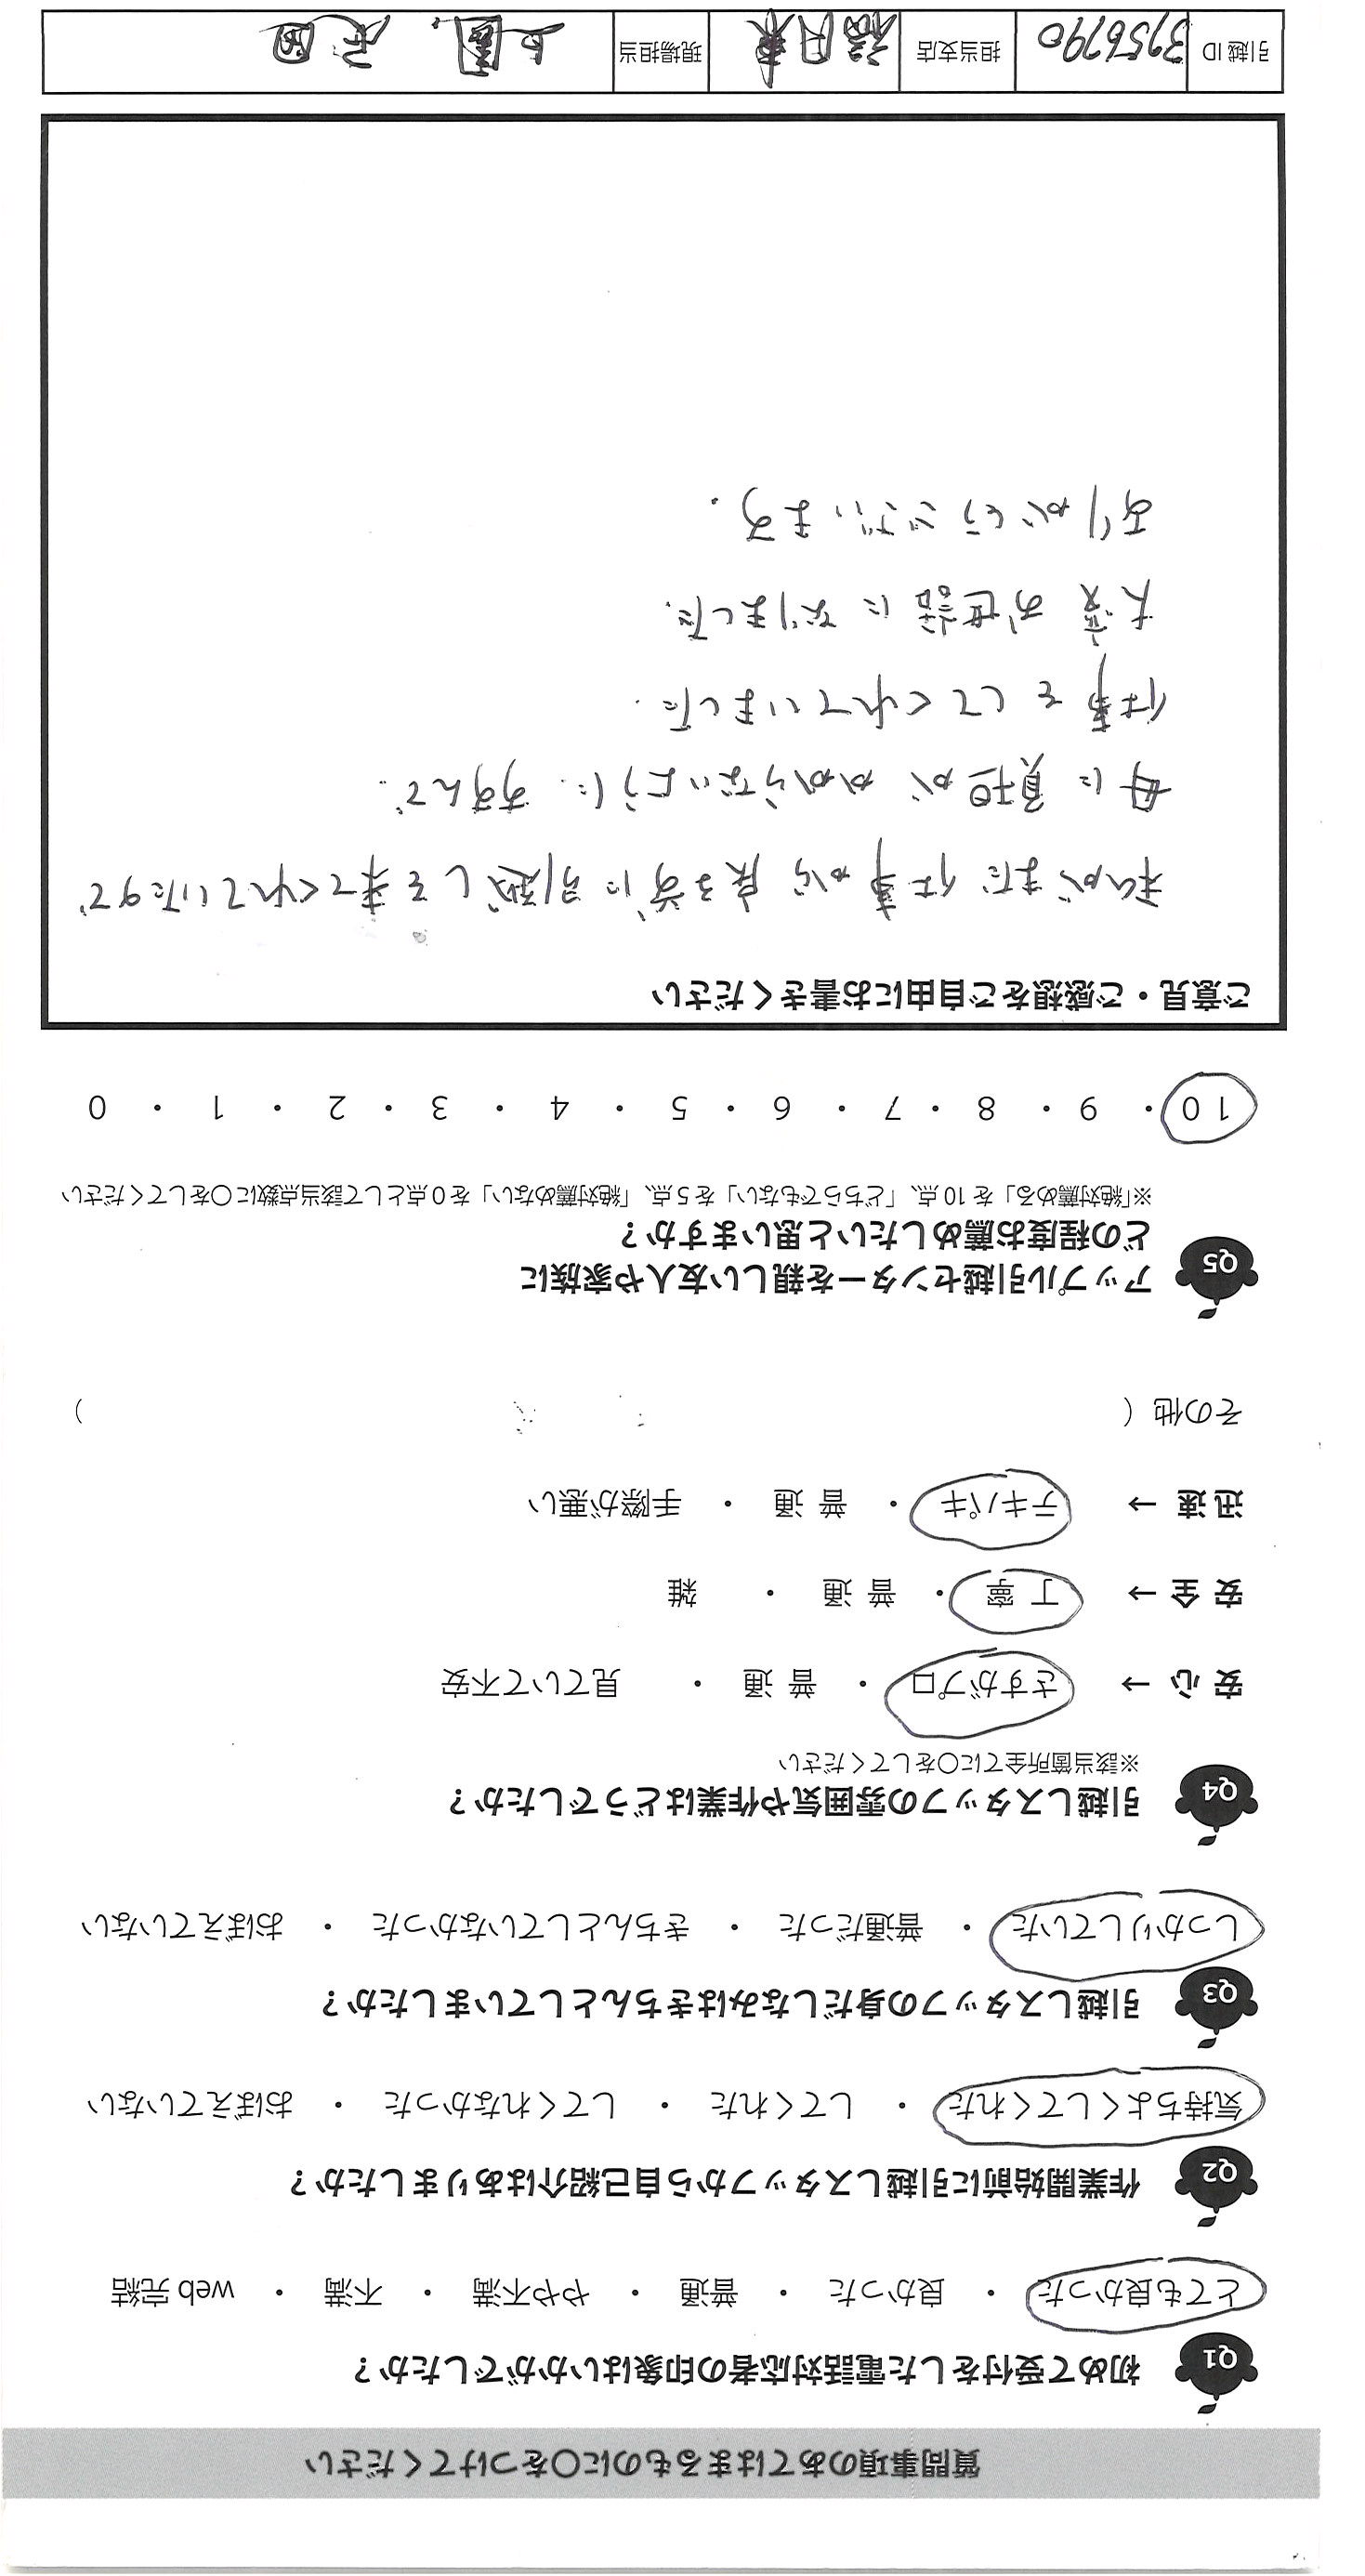 質問事項のあてはまるものに〇をつけてください
Q1 初めて受付をした電話対応者の印象はいかがでしたか？
とても良かった ・ 良かった ・ 普通 ・ やや不満 ・ 不満 ・ web 完結
Q2 作業開始前に引越しスタッフから自己紹介はありましたか？
気持ちよくしてくれた ・ してくれた ・ してくれなかった ・ おぼえていない
Q3 引越しスタッフの身だしなみはきちんとしていましたか？
しっかりしていた ・ 普通だった ・ きちんとしていなかった ・ おぼえていない
Q4 引越しスタッフの雰囲気や作業はどうでしたか？
※該当箇所全てに〇をしてください
安 心 → さすがプロ ・ 普 通 ・ 見ていて不安
安 全 → 丁 寧 ・ 普 通 ・ 雑
迅 速 → テキパキ ・ 普 通 ・ 手際が悪い
その他（ ）
Q5 アップル引越センターを親しい友人や家族に
どの程度お薦めしたいと思いますか？
※「絶対薦める」を 10 点、「どちらでもない」を 5 点、「絶対薦めない」を 0 点として該当点数に〇をしてください
10 ・ 9 ・ 8 ・ 7 ・ 6 ・ 5 ・ 4 ・ 3 ・ 2 ・ 1 ・ 0
ご意見・ご感想をご自由にお書きください
私がまだ仕事から戻る前に引越しを来てくれていたので、
母に負担がかからないように、すすんで、
仕事をしてくれていました。
大変お世話になりました。
ありがとうございます。
引越 ID 3756790 担当支店 福岡東 現場担当 上園、